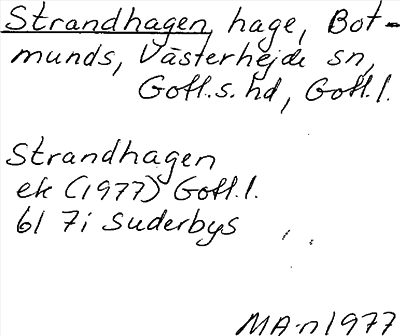 Strandhagen, hage, Bot-
munds, Västerhejde sn,
Gotl.s. hd, Gotl. l.
Strandhagen
ek (1977) Gotl. l.
6I 7i Suderbys
MA-n 1977